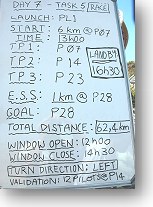 DAY 7 - TASK 5 (RACE)
LAUNCH: PL1
START: 6 km @ P07
TIME: 13h00
TP1: P07
LANDBY
16h30
TP2: P14
TP3: P23
E.S.S: 1km @ P28
GOAL: P28
TOTAL DISTANCE: 62,4km
WINDOW OPEN: 12h00
WINDOW CLOSE: 14h30
TURN DIRECTION: LEFT
VALIDATION: 12 PILOTS @ P14